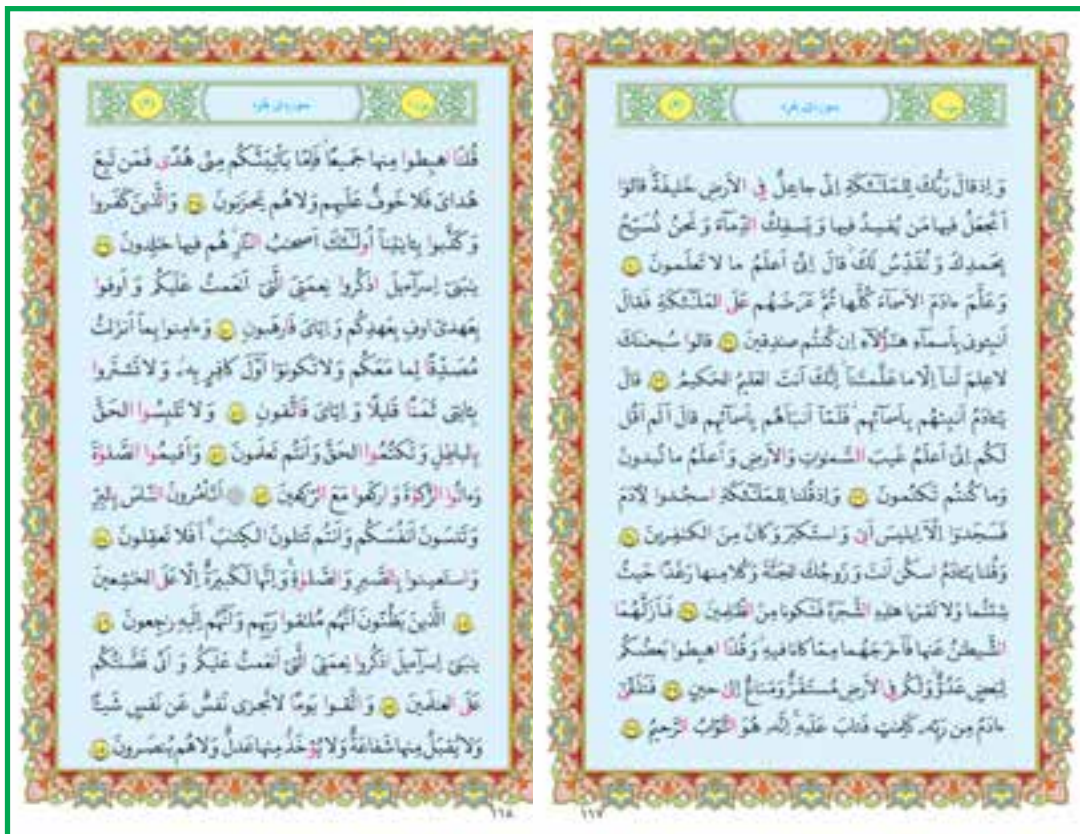 سوره‌ی بقره
وَ اِذ قالَ رَبُّكَ لِلمَلٰئِكَةِ اِنّی جاعِلٌ فِی الاَرضِ خَلیفَةً قالوٓا
اَتَجعَلُ فیها مَن یُفسِدُ فیها وَ یَسفِكُ الدِّمآءَ وَ نَحنُ نُسَبِّحُ
بِحَمدِكَ وَ نُقَدِّسُ لَكَ قالَ اِنّیٓ اَعلَمُ ما لا تَعلَمونَ
وَ عَلَّمَ ءادَمَ الاَسمآءَ كُلَّها ثُمَّ عَرَضَهُم عَلَی المَلٰئِكَةِ فَقالَ
اَنبِئونی بِاَسمآءِ هٰٓؤُلآءِ اِن كُنتُم صٰدِقینَ قالوا سُبحٰنَكَ
لا عِلمَ لَنآ اِلّا ما عَلَّمتَنآ اِنَّكَ اَنتَ العَلیمُ الحَكیمُ قالَ
یٰٓـٔادَمُ اَنبِئهُم بِاَسمآئِهِم فَلَمّآ اَنبَاَهُم بِاَسمآئِهِم قالَ اَلَم اَقُل
لَكُم اِنّیٓ اَعلَمُ غَیبَ السَّمٰوٰتِ وَ الاَرضِ وَ اَعلَمُ ما تُبدونَ
وَ ما كُنتُم تَكتُمونَ وَ اِذ قُلنا لِلمَلٰئِكَةِ اسجُدوا لِأٓدَمَ
فَسَجَدوٓا اِلّآ اِبلیسَ اَبیٰ وَ استَكبَرَ وَ كانَ مِنَ الكٰفِرینَ
وَ قُلنا یٰٓـٔادَمُ اسكُن اَنتَ وَ زَوجُكَ الجَنَّةَ وَ كُلا مِنها رَغَدًا حَیثُ
شِئتُما وَ لا تَقرَبا هٰذِهِ الشَّجَرَةَ فَتَكونا مِنَ الظّٰلِمینَ فَاَزَلَّهُمَا
الشَّیطٰنُ عَنها فَاَخرَجَهُما مِمّا كانا فیهِ وَ قُلنَا اهبِطوا بَعضُكُم
لِبَعضٍ عَدُوٌّ وَ لَكُم فِی الاَرضِ مُستَقَرٌّ وَ مَتاعٌ اِلیٰ حینٍ فَتَلَقّیٰٓ
ءادَمُ مِن رَبِّهٖ كَلِمٰتٍ فَتابَ عَلَیهِ اِنَّهُ هُوَ التَّوّابُ الرَّحیمُ
۱۱۷
سوره‌ی بقره
قُلنَا اهبِطوا مِنها جَمیعًا فَاِمّا یَأتِیَنَّكُم مِنّی هُدًی فَمَن تَبِعَ
هُدایَ فَلا خَوفٌ عَلَیهِم وَ لا هُم یَحزَنونَ وَ الَّذینَ كَفَروا
وَ كَذَّبوا بِـٔایٰتِنآ اُولٰٓئِكَ اَصحٰبُ النّارِ هُم فیها خٰلِدونَ
یٰبَنیٓ اِسرآءیلَ اذكُروا نِعمَتِیَ الَّتیٓ اَنعَمتُ عَلَیكُم وَ اَوفوا
بِعَهدیٓ اوفِ بِعَهدِكُم وَ اِیّایَ فَارهَبونِ وَ ءامِنوا بِمآ اَنزَلتُ
مُصَدِّقًا لِما مَعَكُم وَ لا تَكونوٓا اَوَّلَ كافِرٍ بِهٖ وَ لا تَشتَروا
بِـٔایٰتی ثَمَنًا قَلیلًا وَ اِیّایَ فَاتَّقونِ وَ لا تَلبِسُوا الحَقَّ
بِالباطِلِ وَ تَكتُمُوا الحَقَّ وَ اَنتُم تَعلَمونَ وَ اَقیمُوا الصَّلوٰةَ
وَ ءاتُوا الزَّكوٰةَ وَ اركَعوا مَعَ الرّٰكِعینَ اَتَأمُرونَ النّاسَ بِالبِرِّ
وَ تَنسَونَ اَنفُسَكُم وَ اَنتُم تَتلونَ الكِتٰبَ اَفَلا تَعقِلونَ
وَ استَعینوا بِالصَّبرِ وَ الصَّلوٰةِ وَ اِنَّها لَكَبیرَةٌ اِلّا عَلَی الخٰشِعینَ
الَّذینَ یَظُنّونَ اَنَّهُم مُلٰقوا رَبِّهِم وَ اَنَّهُم اِلَیهِ رٰجِعونَ
یٰبَنیٓ اِسرآءیلَ اذكُروا نِعمَتِیَ الَّتیٓ اَنعَمتُ عَلَیكُم وَ اَنّی فَضَّلتُكُم
عَلَی العٰلَمینَ وَ اتَّقوا یَومًا لا تَجزی نَفسٌ عَن نَفسٍ شَیـًٔا
وَ لا یُقبَلُ مِنها شَفاعَةٌ وَ لا یُؤخَذُ مِنها عَدلٌ وَ لا هُم یُنصَرونَ
۱۱۸